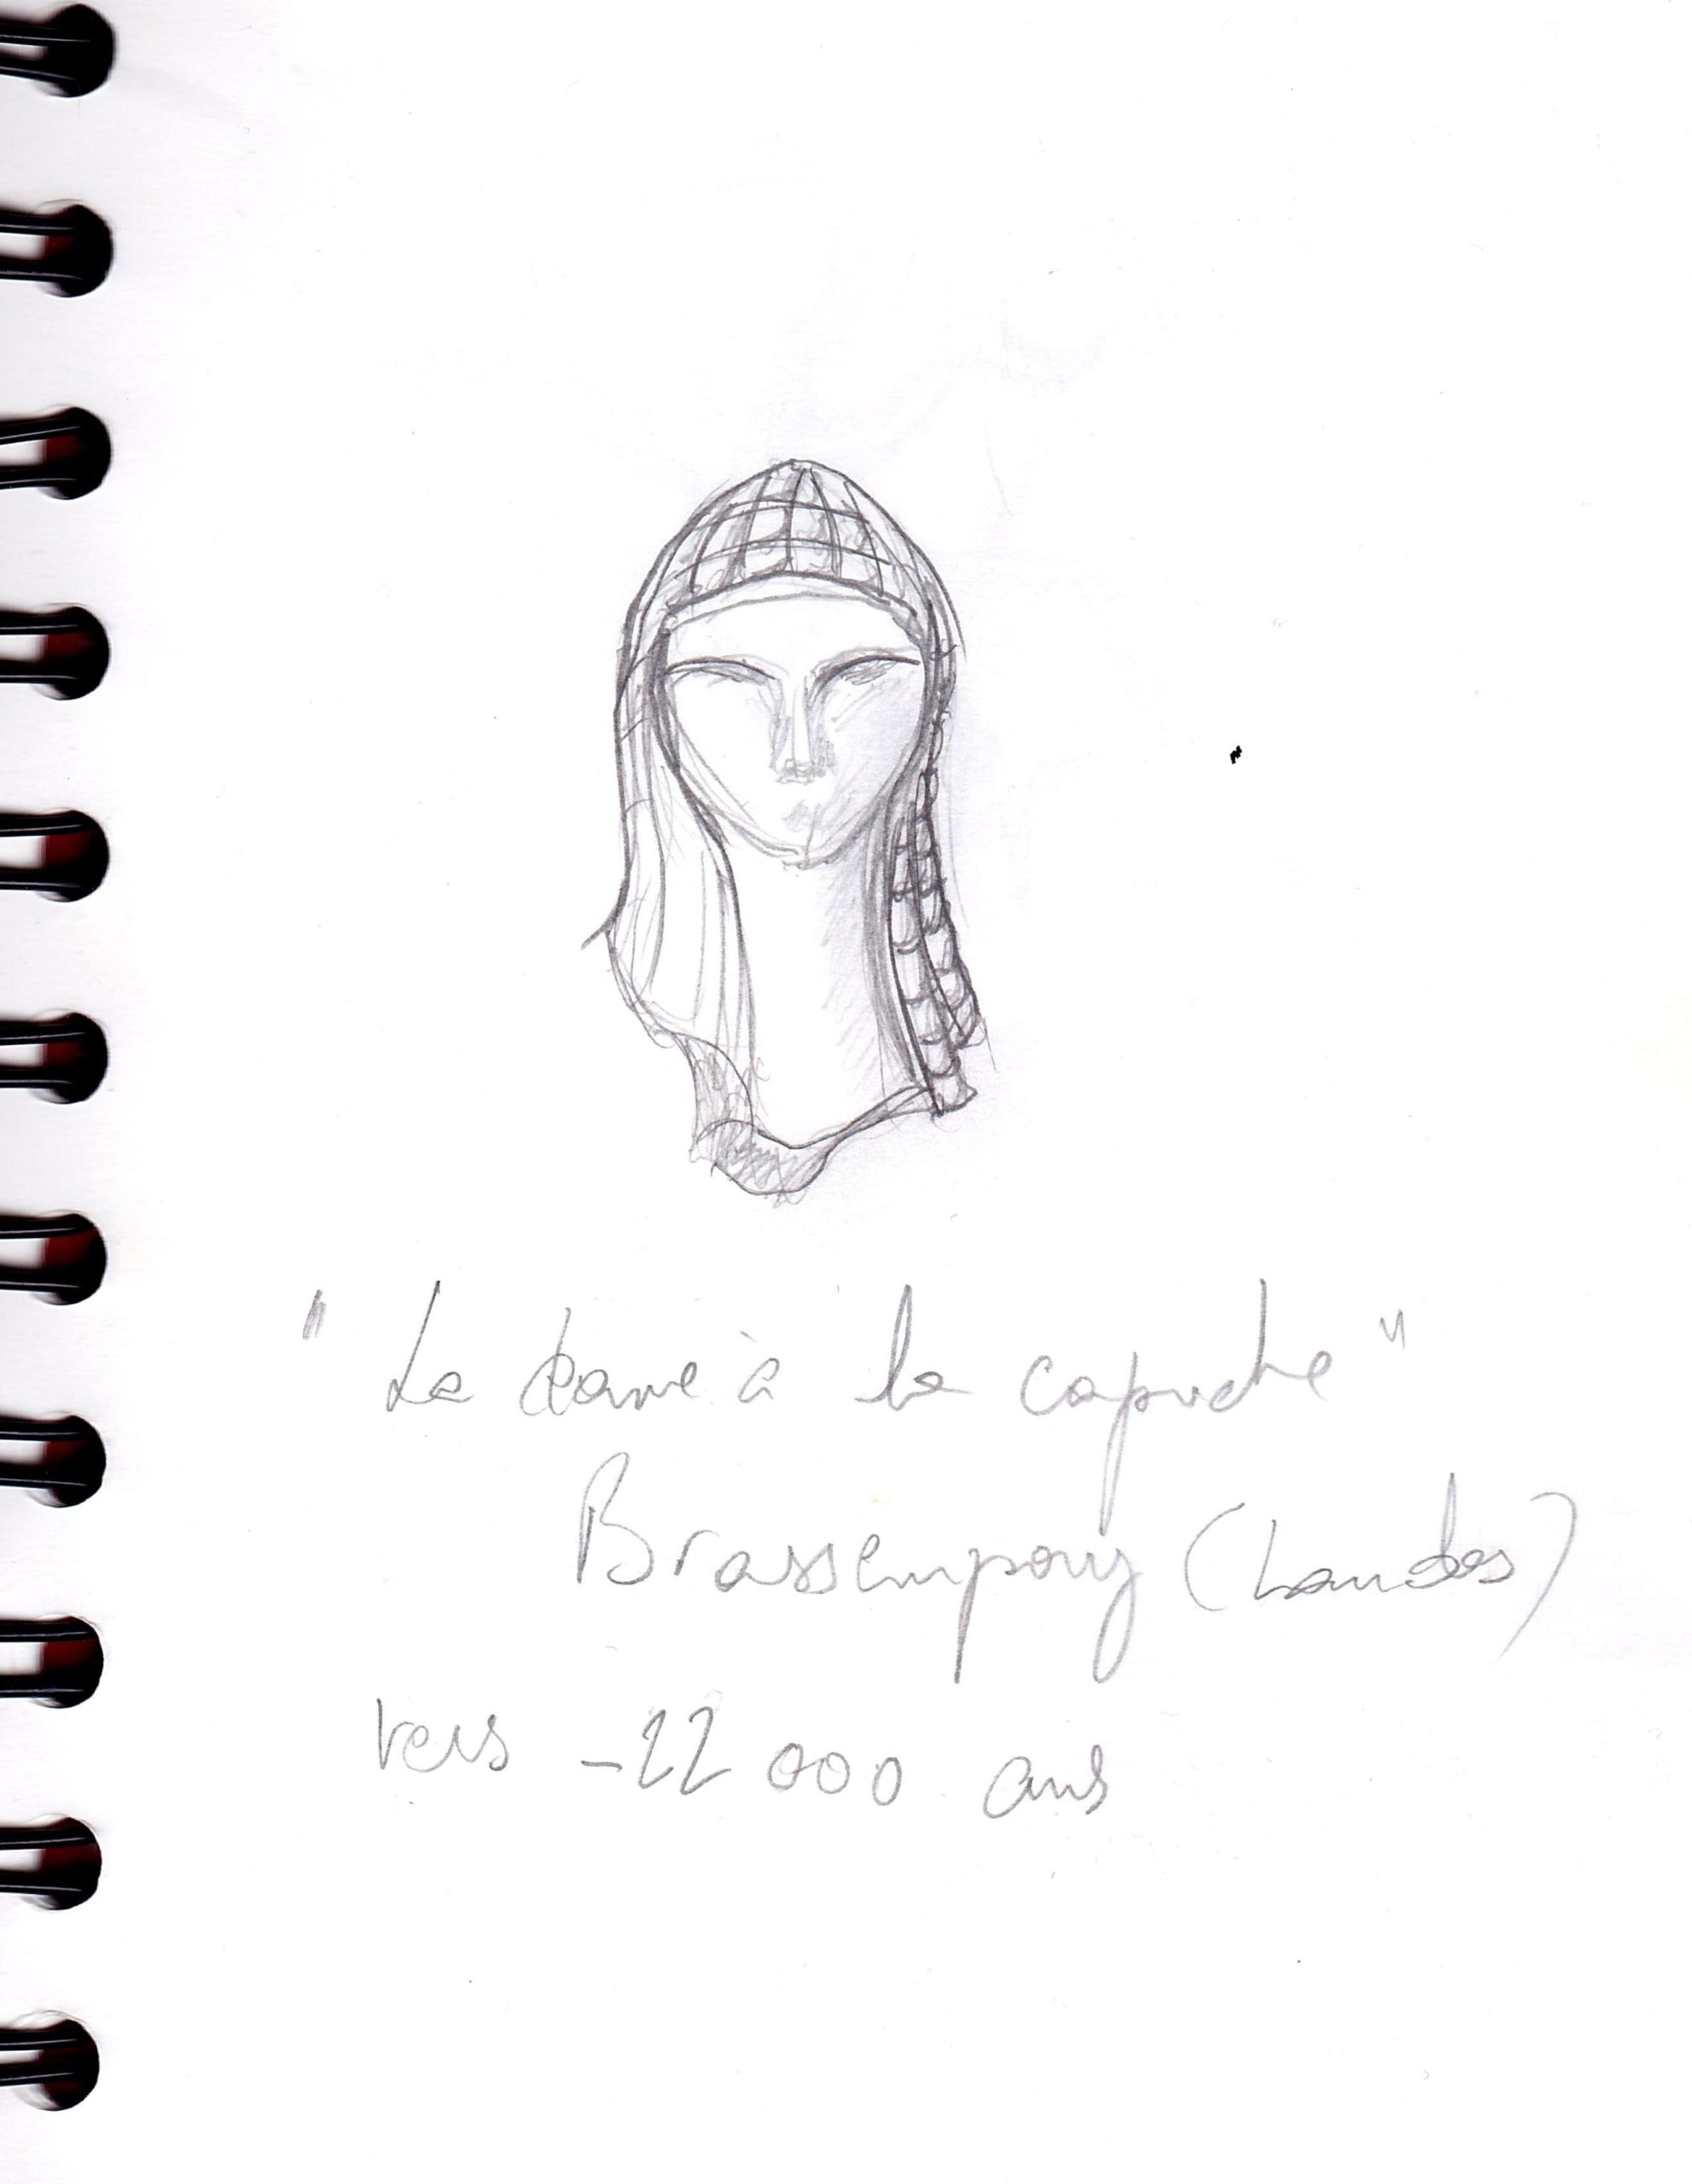 "La dame à la capuche"
Brassempouy (Landes)
vers -22 000 ans